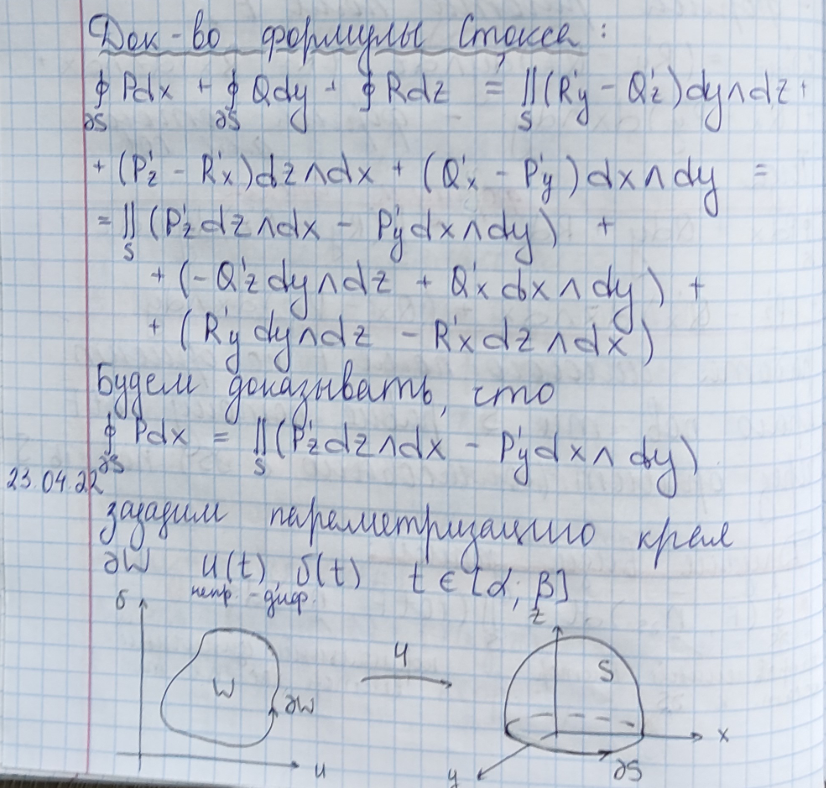 Док-во формулы Стокса:
∮ Pdx + ∮ Qdy + ∮ Rdz = ∬ (R'y - Q'z) dy∧dz +
∂S ∂S S
+ (P'z - R'x) dz∧dx + (Q'x - P'y) dx∧dy =
= ∬ (P'z dz∧dx - P'y dx∧dy) +
S
+ (-Q'z dy∧dz + Q'x dx∧dy) +
+ (R'y dy∧dz - R'x dz∧dx)
Будем доказывать, что
∮ Pdx = ∬ (P'z dz∧dx - P'y dx∧dy)
∂S S
23.04.22
зададим параметризацию края
∂W u(t), б(t) t ∈ [α; β]
непр-диф.
б z
W ∂W
φ
S
u
x
y
∂S